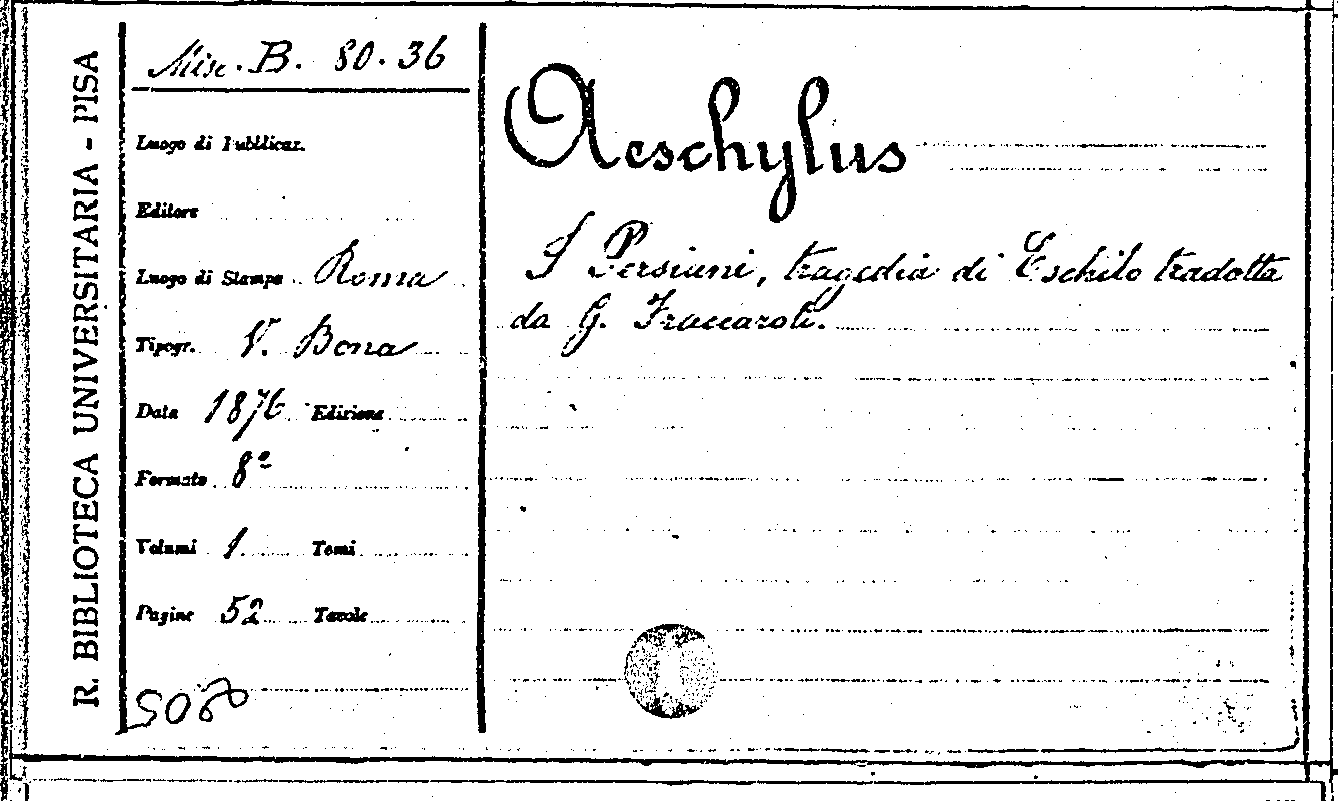 R. BIBLIOTECA UNIVERSITARIA - PISA
Misc. B. 80.36
Luogo di Pubblicaz.
Editore
Luogo di Stampa Roma
Tipogr. V. Bona
Data 1876 Edizione
Formato 8º
Volumi 1. Tomi
Pagine 52 Tavole
Aeschylus
I Persiani, tragedia di Eschilo tradotta
da G. Fraccaroli.